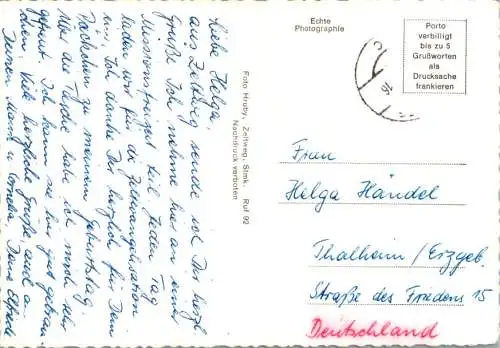 Liebe Helga,
aus Zeltweg sende ich Dir herzl.
Grüße. Ich nehme hier an einer
Missionsfreizeit teil. Jeden Tag
laden wir für die Zeltevangelisation
ein. Ich danke Dir herzlich für Dein
Päckchen zu meinem Geburtstag.
Über die Tasche habe ich mich sehr
gefreut. Ich kann sie hier gut gebrau-
chen. Viel herzliche Grüße, auch an
Deinen Mann u. Cornelia, Deine
Foto Hruby, Zeltweg, Stmk. Ruf 92
Nachdruck verboten
Echte
Photographie
Porto
verbilligt
bis zu 5
Grußworten
als
Drucksache
frankieren
Frau
Helga Händel
Thalheim/Erzgeb.
Straße des Friedens 15
Deutschland